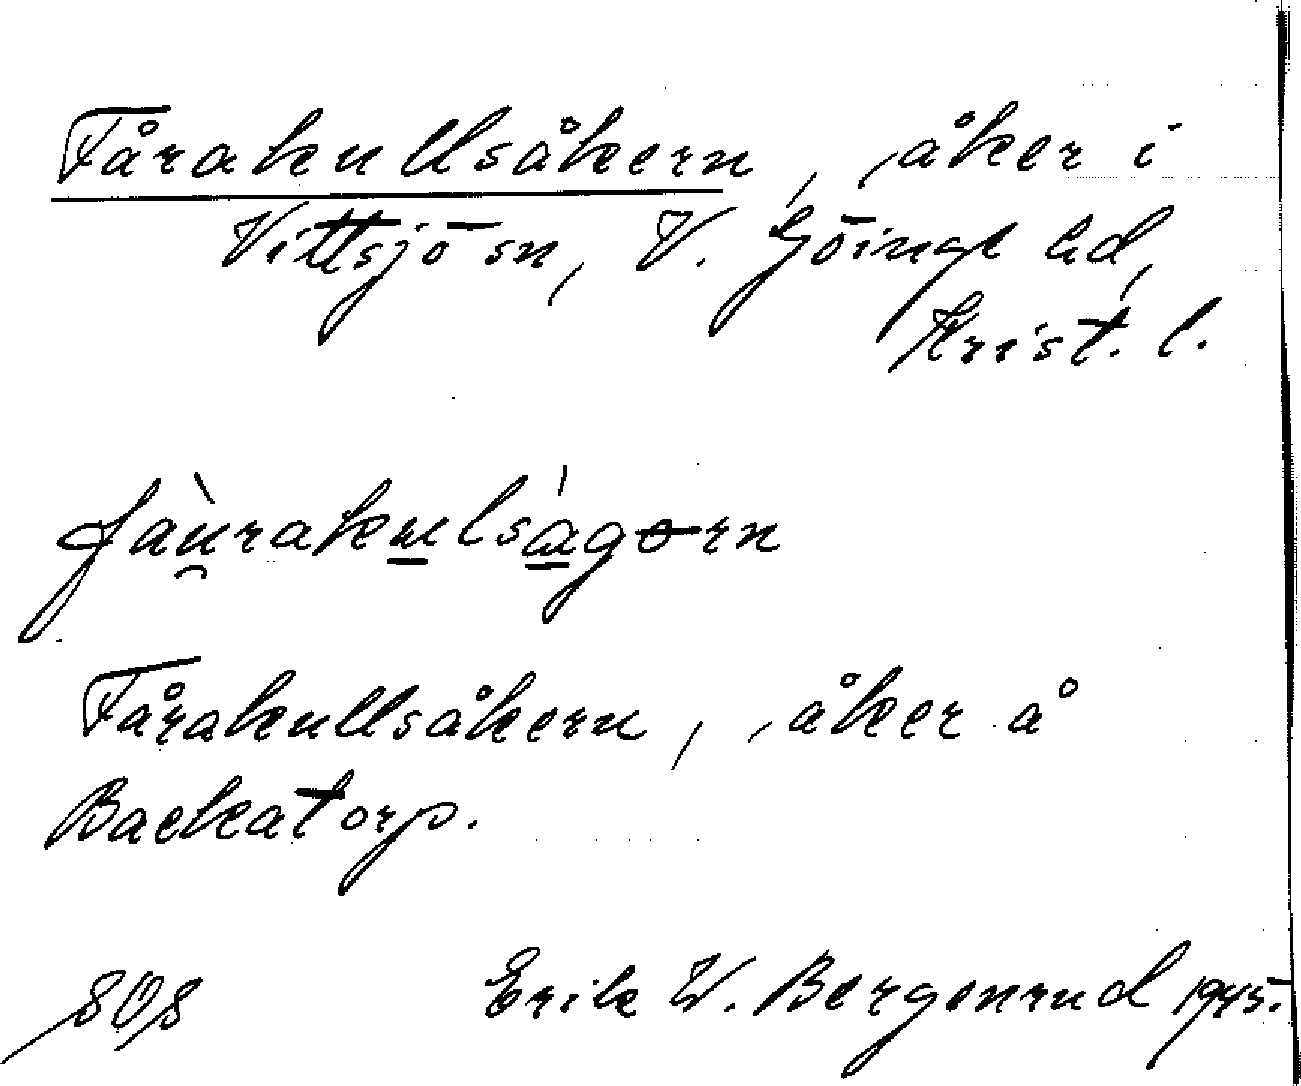 Fårakullsåkern, åker i
Vittsjö sn, V. Göinge hd,
Krist. l.
fàu̯rakulságɵrn
Fårakullsåkern, åker å
Backatorp.
808 Erik W. Bergenrud 1945.